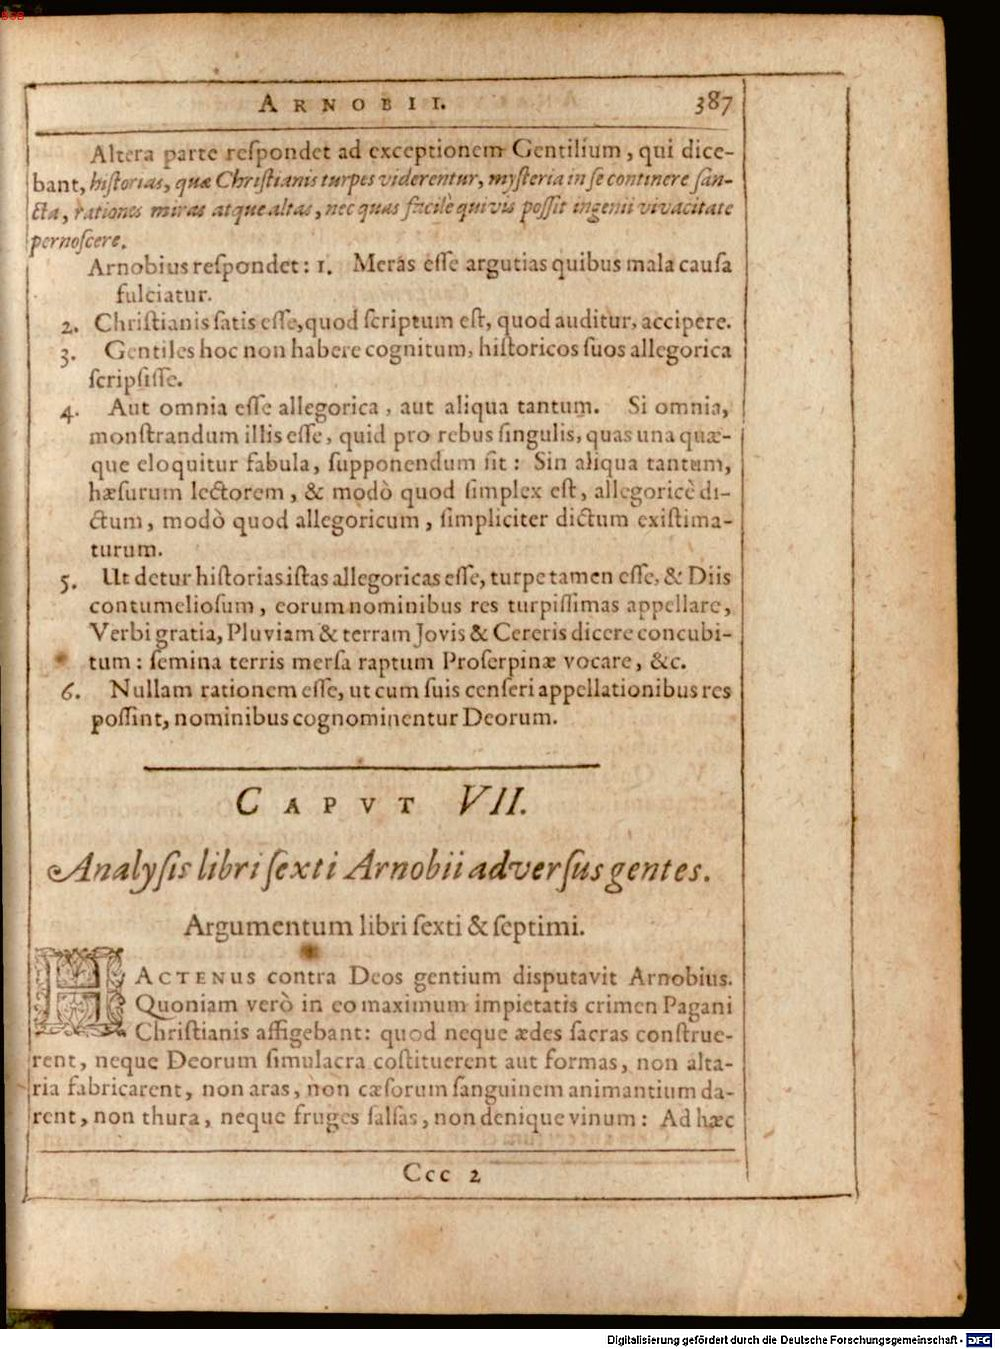 BSB
ARNOBII.
387
Altera parte reſpondet ad exceptionem Gentilium, qui dice-
bant, hiſtorias, quæ Chriſtianis turpes viderentur, myſteria in ſe continere ſan-
cta, rationes miras atque altas, nec quas facilè quivis poſſit ingenii vivacitate
pernoſcere.
Arnobius reſpondet: 1. Meras eſſe argutias quibus mala cauſa
fulciatur.
2. Chriſtianis ſatis eſſe, quod ſcriptum eſt, quod auditur, accipere.
3. Gentiles hoc non habere cognitum, hiſtoricos ſuos allegorica
ſcripſiſſe.
4. Aut omnia eſſe allegorica, aut aliqua tantum. Si omnia,
monſtrandum illis eſſe, quid pro rebus ſingulis, quas una quæ-
que eloquitur fabula, ſupponendum ſit: Sin aliqua tantum,
hæſurum lectorem, & modò quod ſimplex eſt, allegoricè di-
ctum, modò quod allegoricum, ſimpliciter dictum exiſtima-
turum.
5. Ut detur hiſtorias iſtas allegoricas eſſe, turpe tamen eſſe, & Diis
contumelioſum, eorum nominibus res turpiſſimas appellare,
Verbi gratia, Pluviam & terram Jovis & Cereris dicere concubi-
tum: ſemina terris merſa raptum Proſerpinæ vocare, &c.
6. Nullam rationem eſſe, ut cum ſuis cenſeri appellationibus res
poſſint, nominibus cognominentur Deorum.
CAPVT VII.
Analyſis libri ſexti Arnobii adverſus gentes.
Argumentum libri ſexti & ſeptimi.
HACTENUS contra Deos gentium diſputavit Arnobius.
Quoniam verò in eo maximum impietatis crimen Pagani
Chriſtianis affigebant: quod neque ædes ſacras conſtrue-
rent, neque Deorum ſimulacra coſtituerent aut formas, non alta-
ria fabricarent, non aras, non cæſorum ſanguinem animantium da-
rent, non thura, neque fruges ſalſas, non denique vinum: Ad hæc
Ccc 2
Digitalisierung gefördert durch die Deutsche Forschungsgemeinschaft - DFG